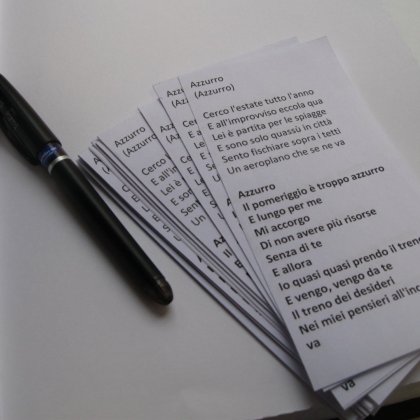 Azzurro
(Azzurro)
Cerco l'estate tutto l'anno
E all'improvviso eccola qua
Lei è partita per le spiagge
E sono solo quassù in città
Sento fischiare sopra i tetti
Un aeroplano che se ne va
Azzurro
Il pomeriggio è troppo azzurro
E lungo per me
Mi accorgo
Di non avere più risorse
Senza di te
E allora
Io quasi quasi prendo il treno
E vengo, vengo da te
Il treno dei desideri
Nei miei pensieri all'inc
va
va
Azzurro
(Azzurro)
Cerco